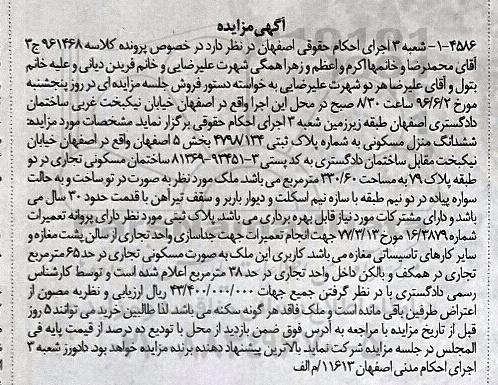 آگهی مزایده
۱-۴۵۸۶- شعبه ۳ اجرای احکام حقوقی اصفهان در نظر دارد در خصوص پرونده کلاسه ۹۶۱۴۶۸ ج۳
آقای محمدرضا و خانمها اکرم و اعظم و زهرا همگی شهرت علیرضایی و خانم فریدن دیانی و علیه خانم
بتول و آقای علیرضا هر دو شهرت علیرضایی به خواسته دستور فروش جلسه مزایده ای در روز پنجشنبه
مورخ ۹۶/۶/۲ ساعت ۸/۳۰ صبح در محل این اجرا واقع در اصفهان خیابان نیکبخت غربی ساختمان
دادگستری اصفهان طبقه زیرزمین شعبه ۳ اجرای احکام حقوقی برگزار نماید مشخصات مورد مزایده:
ششدانگ منزل مسکونی به شماره پلاک ثبتی ۴۷۹۸/۱۳۴ بخش ۵ اصفهان واقع در اصفهان خیابان
نیکبخت مقابل ساختمان دادگستری به کد پستی ۳-۹۳۴۵۱-۸۱۳۶۹ ساختمان مسکونی تجاری در دو
طبقه پلاک ۷۹ به مساحت ۳۳۰/۶۰ مترمربع می باشد. ملک مورد نظر به صورت در تو ساخت و به حالت
سواره پیاده در دو نیم طبقه با سازه نیم اسکلت و دیوار باربر و سقف تیرآهن با قدمت حدود ۳۰ سال می
باشد و دارای مشترکات مورد نیاز قابل بهره برداری می باشد. پلاک ثبتی مورد نظر دارای پروانه تعمیرات
شماره ۱۶/۳۸۷۹ مورخ ۷۷/۳/۱۳ جهت انجام تعمیرات جهت جداسازی واحد تجاری از سالن پشت مغازه و
سایر کارهای تاسیساتی مغازه می باشد. کاربری این ملک به صورت مسکونی تجاری در حد ۶۵ مترمربع
تجاری در همکف و بالکن داخل واحد تجاری در حد ۳۸ مترمربع اعلام شده است و توسط کارشناس
رسمی دادگستری با در نظر گرفتن جمیع جهات ۴۳/۴۰۰/۰۰۰/۰۰۰ ریال ارزیابی و نظریه مصون از
اعتراض طرفین باقی مانده است و ملک فاقد هر گونه سکنه می باشد. لذا طالبین خرید می توانند ۵ روز
قبل از تاریخ مزایده با مراجعه به آدرس فوق ضمن بازدید از محل با تودیع ده درصد از قیمت پایه فی
المجلس در جلسه مزایده شرکت نماید بالاترین پیشنهاد دهنده برنده مزایده خواهد بود. دادورز شعبه ۳
اجرای احکام مدنی اصفهان ۱۱۶۱۳/م الف